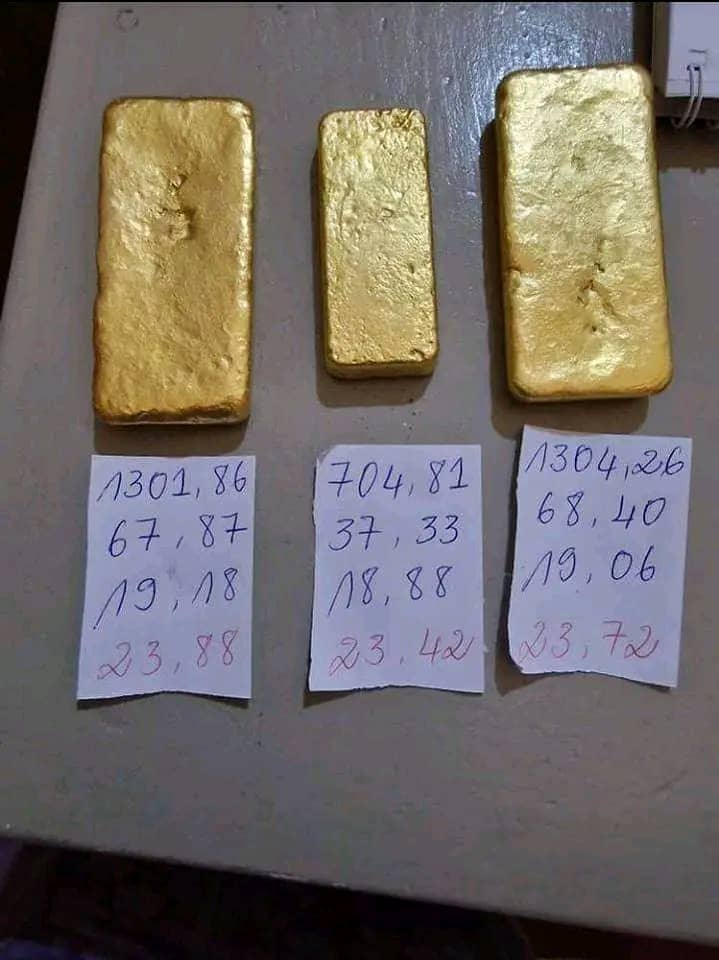 1301,86
67,87
19,18
23,88
704,81
37,33
18,88
23.42
1304,26
68,40
19,06
23,72